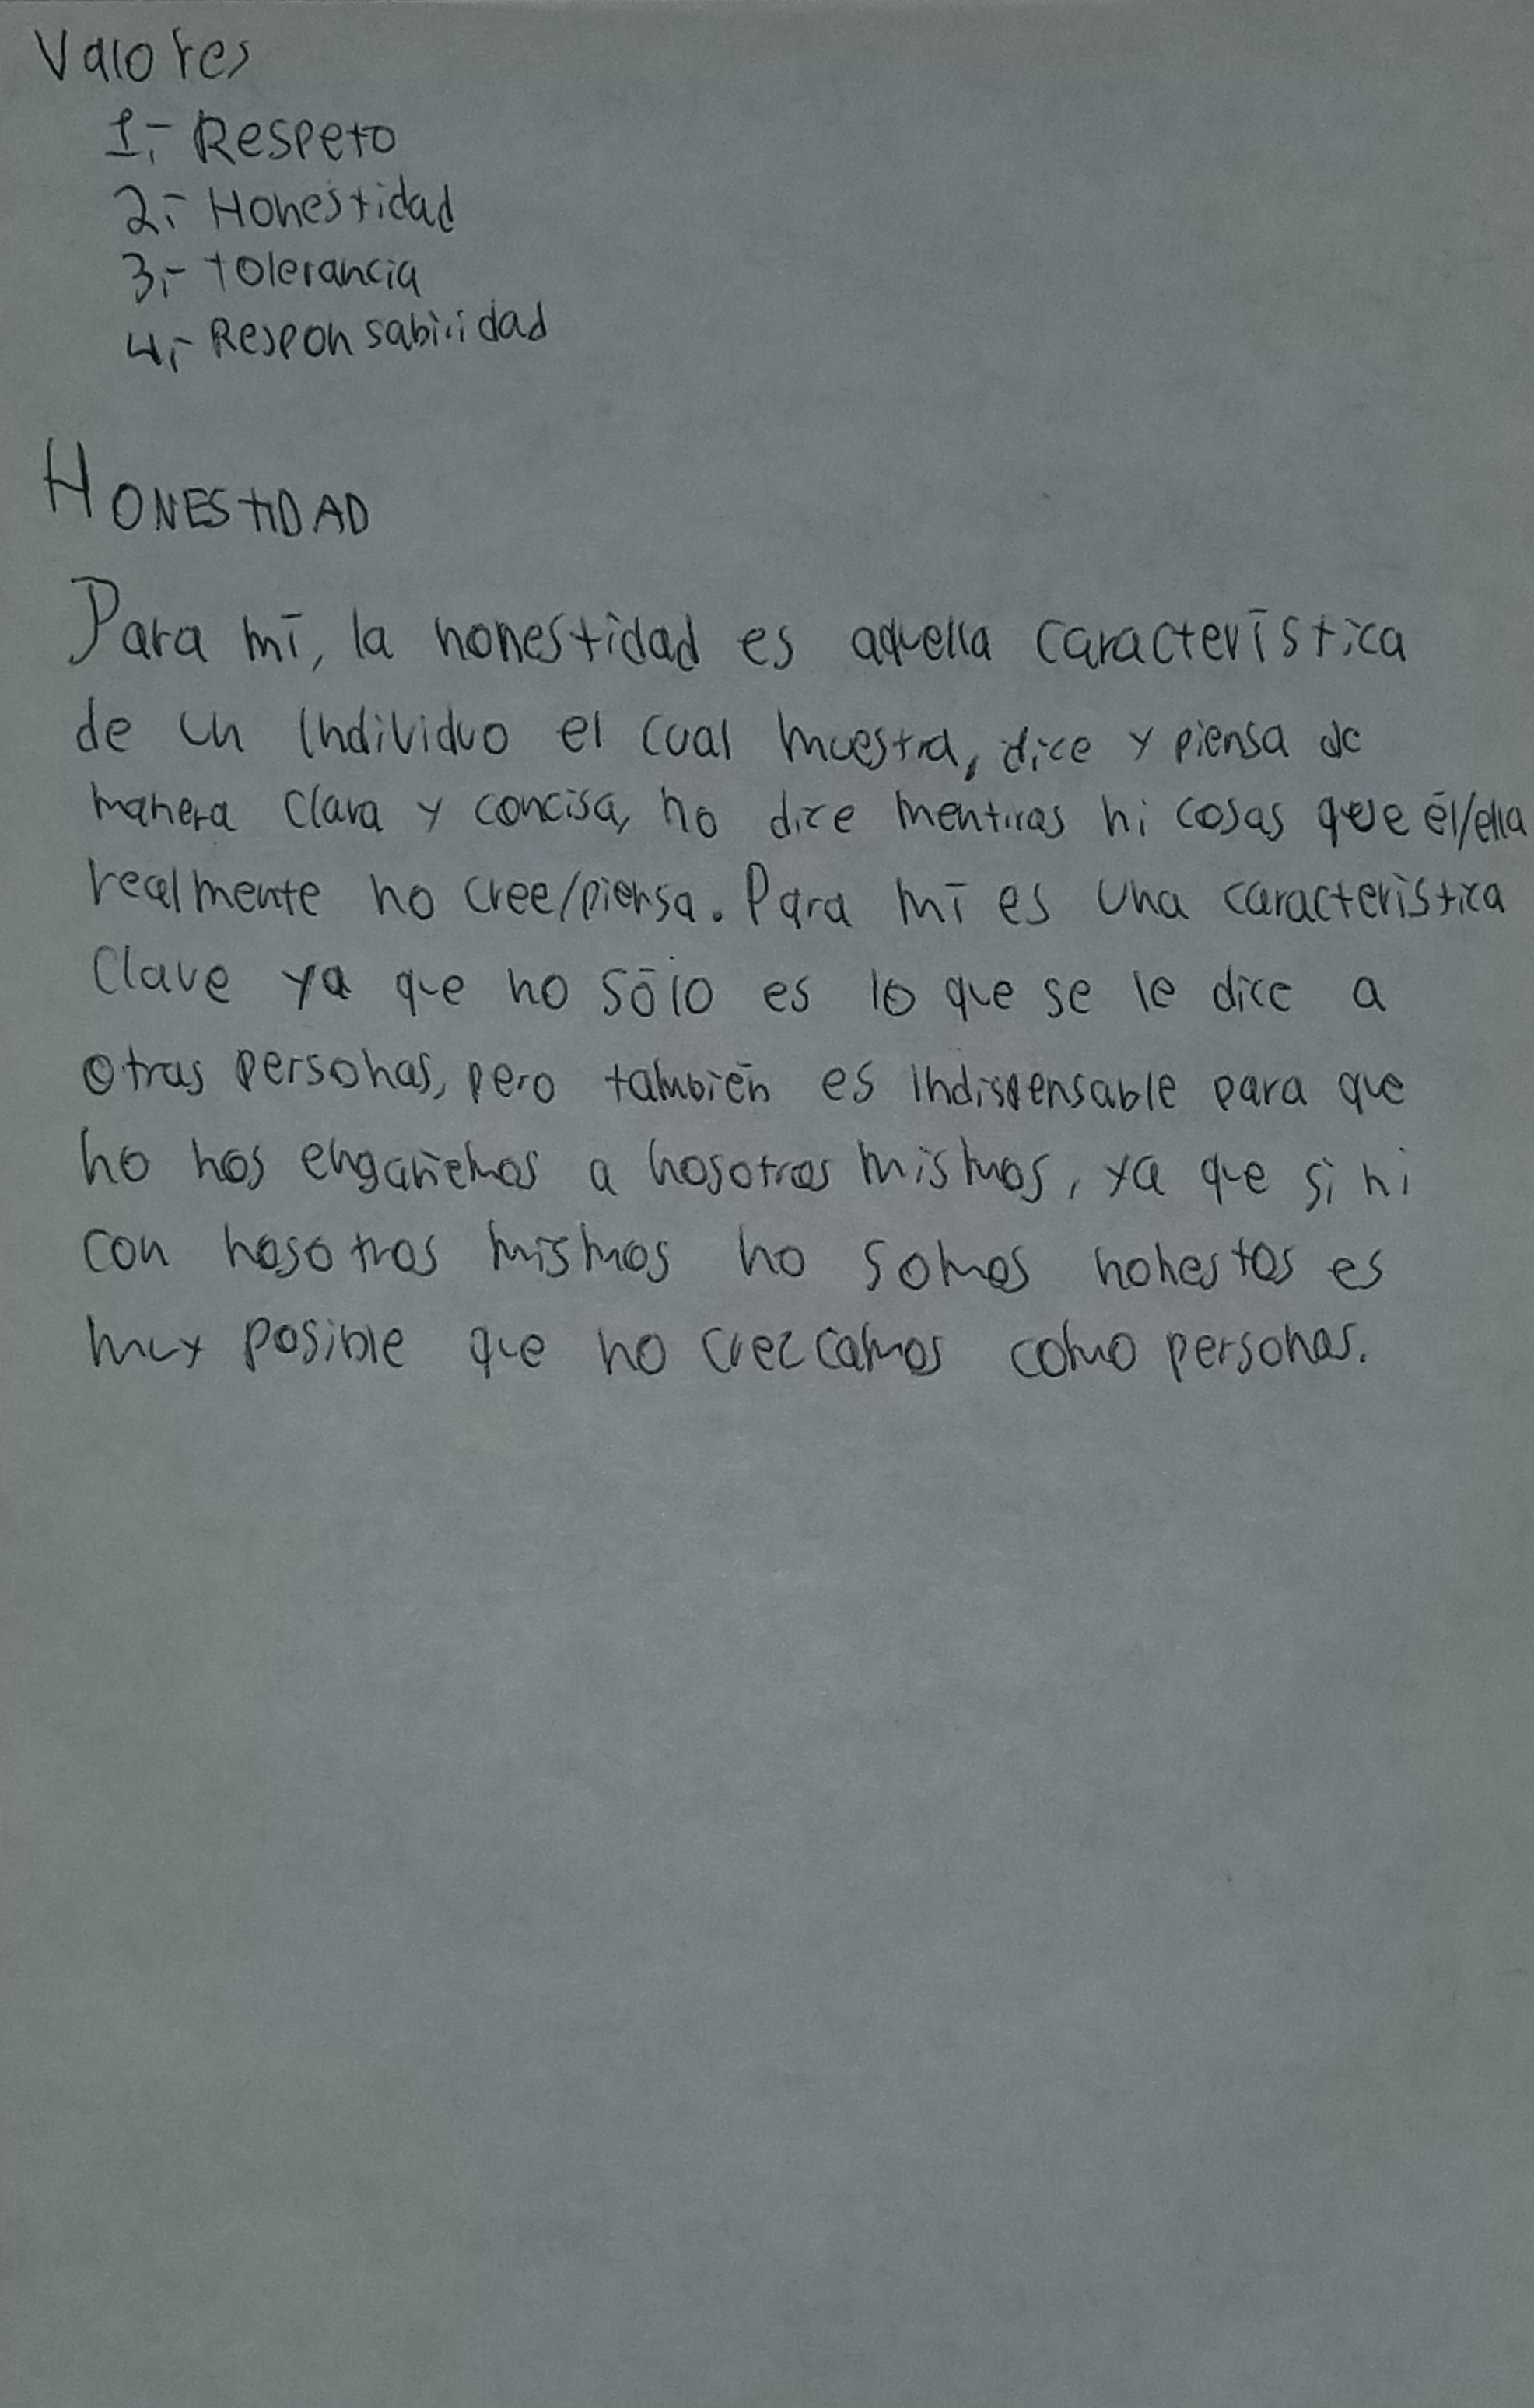 Valores
1.- Respeto
2.- Honestidad
3.- tolerancia
4.- Responsabilidad
HONESTIDAD
Para mí, la honestidad es aquella característica
de un individuo el cual muestra, dice y piensa de
manera clara y concisa, no dice mentiras ni cosas que él/ella
realmente no cree/piensa. Para mí es una característica
clave ya que no sólo es lo que se le dice a
otras personas, pero también es indispensable para que
no nos engañemos a nosotros mismos, ya que si ni
con nosotros mismos no somos honestos es
muy posible que no crezcamos como personas.